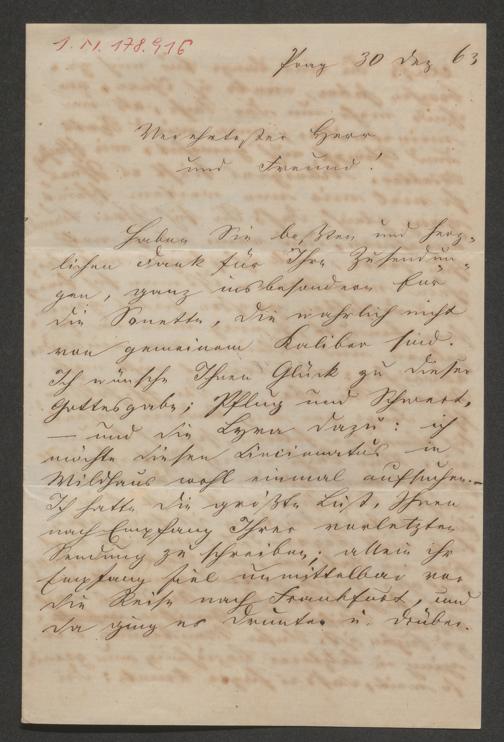 I.N. 178.916
Prag 30 Dez 63
Verehrtester Herr
und Freund!
Haben Sie besten und herz-
lichen Dank für Ihre Zusendun-
gen, ganz insbesondere für
die Sonette, die wahrlich nicht
von gemeinem Kaliber sind.
Ich wünsche Ihnen Glück zu dieser
Gottesgabe; Pflug und Schwert,
— und die Lyra dazu: ich
möchte diesen Cincinnatus in
Wildhaus wohl einmal aufsuchen. —
Ich hatte die größte Lust, Ihnen
nach Empfang Ihrer vorletzten
Sendung zu schreiben; allein ihr
Empfang fiel unmittelbar vor
die Reise nach Frankfurt, und
da ging es drunter u. drüber.